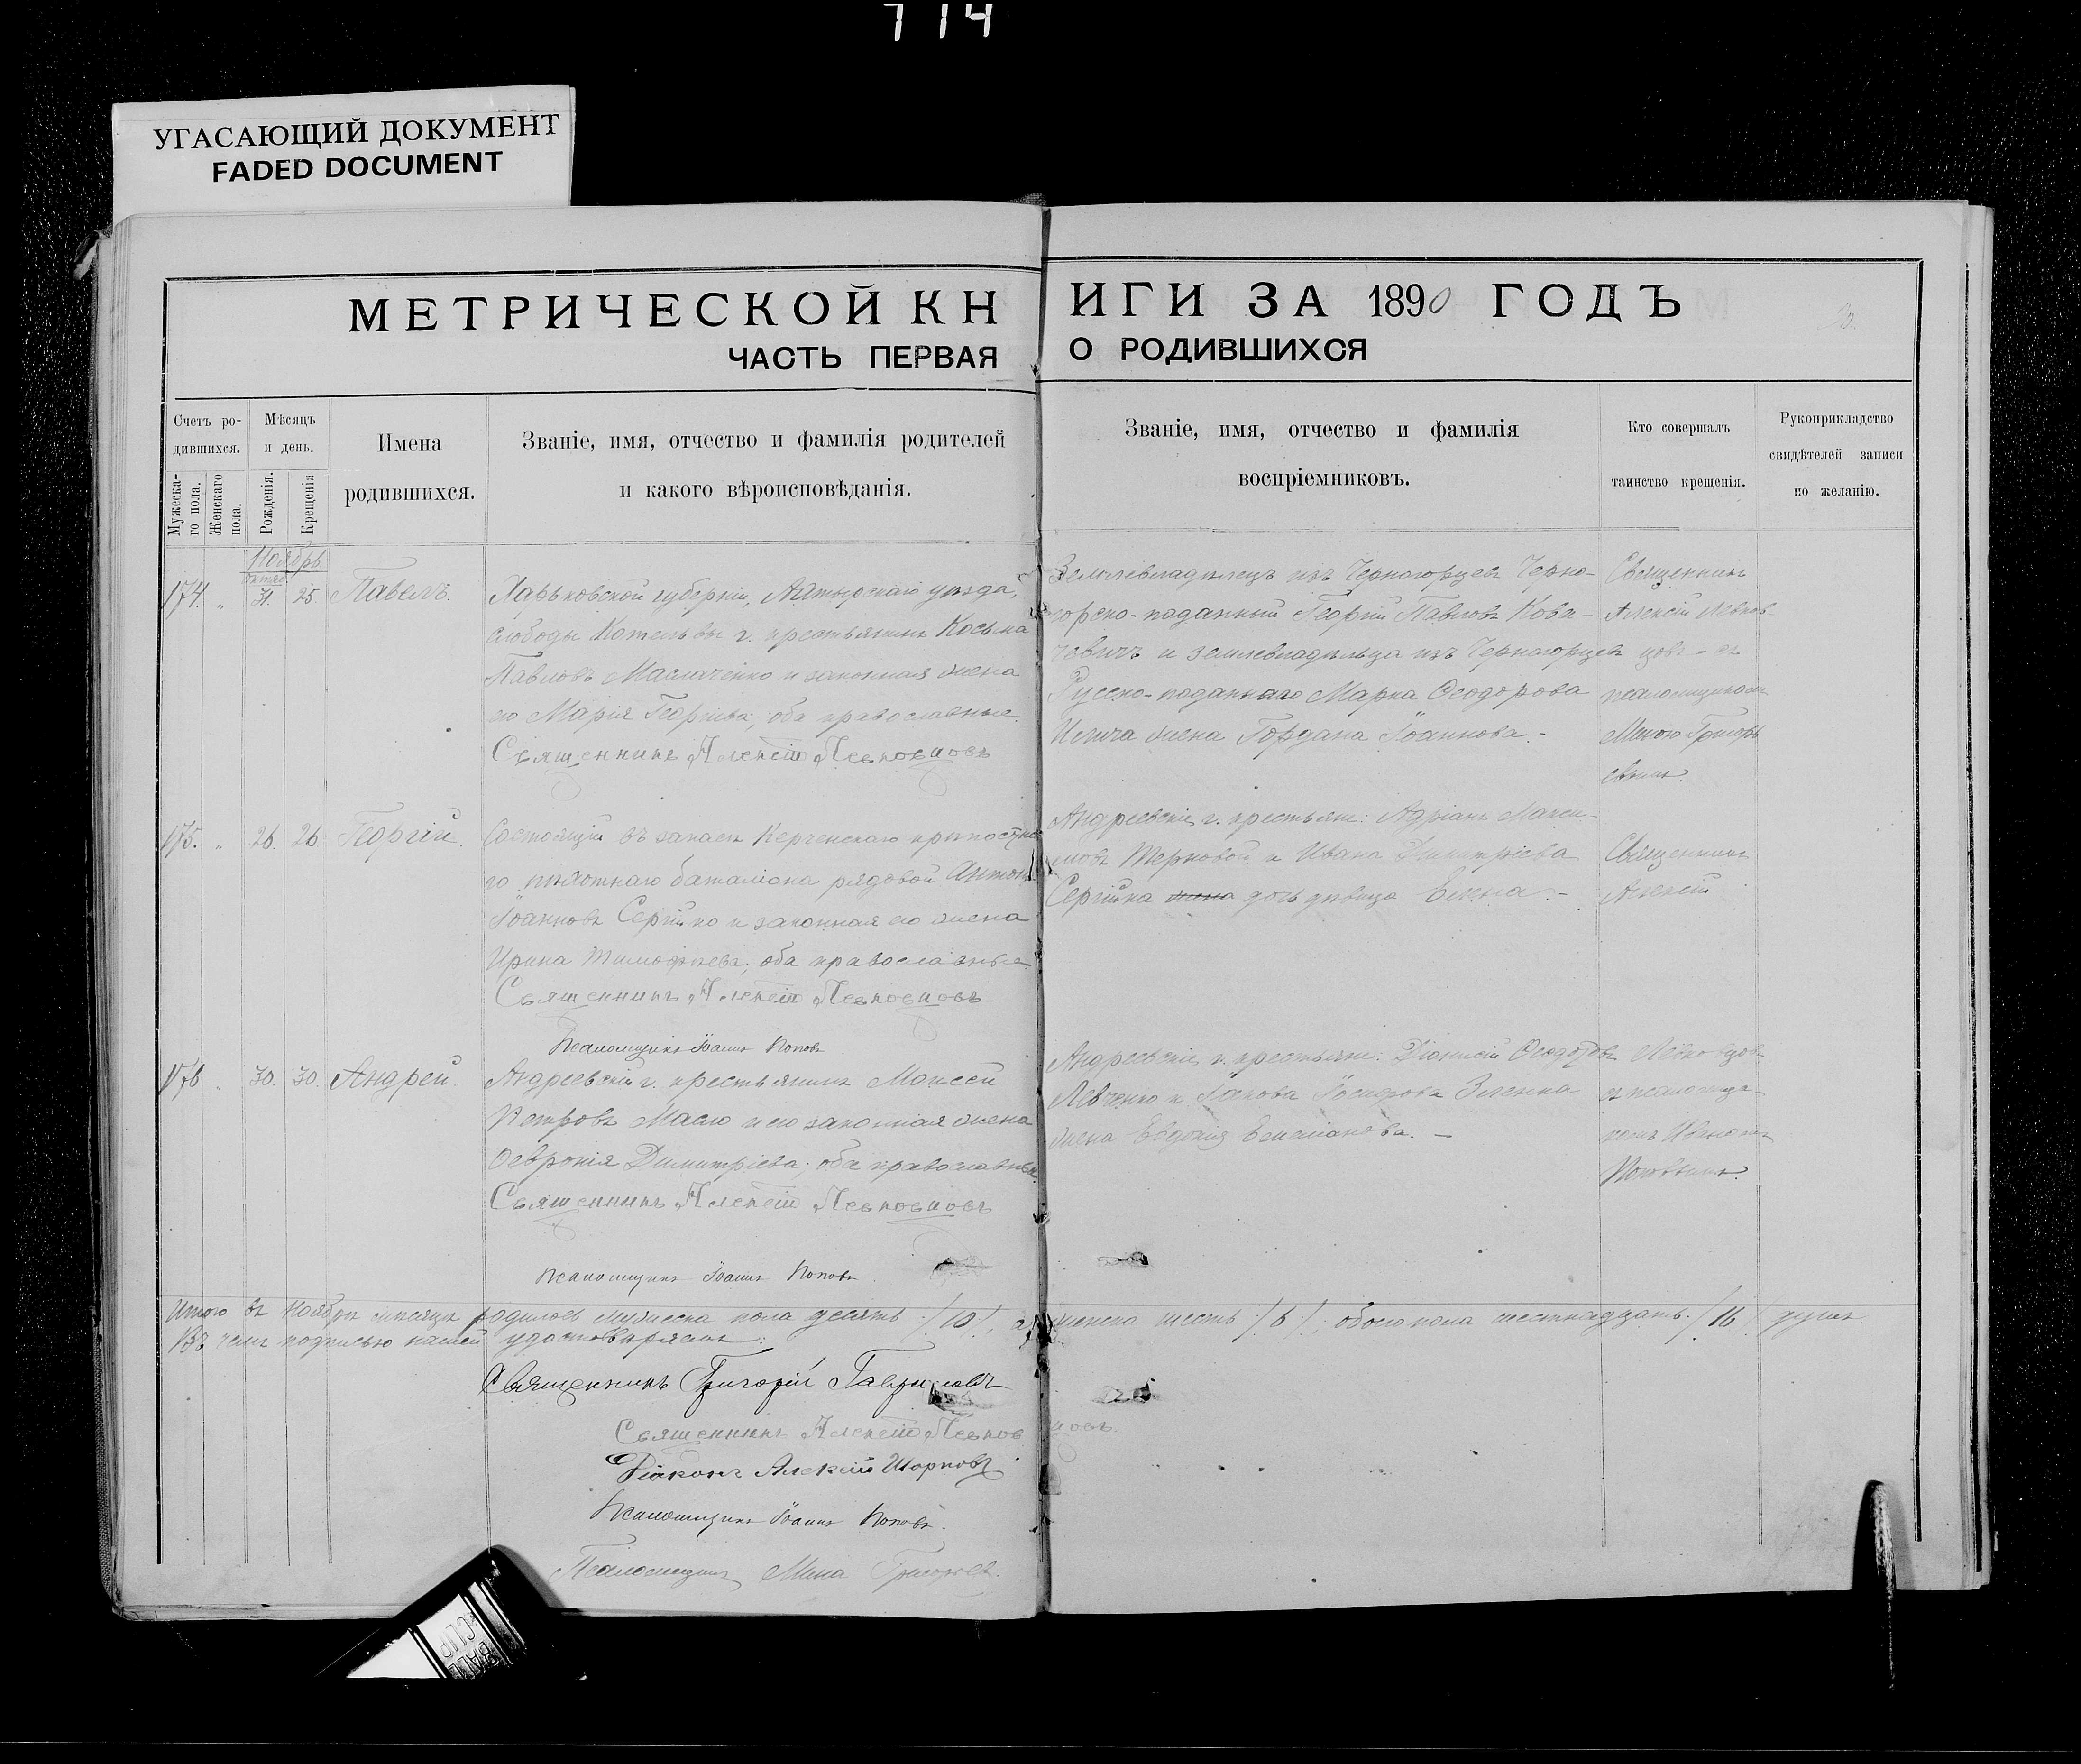 714
УГАСАЮЩИЙ ДОКУМЕНТ
FADED DOCUMENT
МЕТРИЧЕСКОЙ КНИГИ ЗА 1890 ГОДЪ
ЧАСТЬ ПЕРВАЯ О РОДИВШИХСЯ
Счетъ ро-
дившихся.
Мужеска-
го пола.
Женскаго
пола.
Мѣсяцъ
и день.
Рожденія.
Крещенія
Имена
родившихся.
Званіе, имя, отчество и фамилія родителей
и какого вѣроисповѣданія.
Званіе, имя, отчество и фамилія
воспріемниковъ.
Кто совершалъ
таинство крещенія.
Рукоприкладство
свидѣтелей записи
по желанію.
Ноябрь
октяб.
174. " 31. 25. Павелъ.
Харьковской губерніи, Ахтырскаго уѣзда,
слободы Котельвы г. крестьянинъ Косьма
Павловъ Маслаченко и законная жена
его Марія Георгіева; оба православные.
Священникъ Алексій Левковцовъ
Землевладѣлецъ изъ Черногорцевъ Черно-
горско-поданный Георгій Павловъ Кова-
човичъ и землевладѣльца изъ Черногорцевъ
Русско-поданнаго Марка Ѳеодорова
жена Гордана Іоаннова. -
Священникъ
Алексій Левков-
цовъ - съ
псаломщикомъ
Миною Григорь
евымъ.
175. " 26. 26. Георгій.
Состоящій въ запасѣ Керченскаго крѣпостно
го пѣхотнаго баталіона рядовой Антонъ
Іоанновъ Сергійко и законная его жена
Ирина Тимофѣева; оба православные.
Священникъ Алексій Левковцовъ
Псаломщикъ Іоаннъ Поповъ
Андреевскіе г. крестьяне: Адріанъ Макси-
мовъ Терновой и Ивана Димитріева
Сергійка жена дочь дѣвица Елена. -
Священникъ
Алексій
176 " 30. 30. Андрей.
Андреевскій г. крестьянинъ Моисей
Петровъ Масло и его законная жена
Ѳевронія Димитріева; оба православные.
Священникъ Алексій Левковцовъ
Псаломщикъ Іоаннъ Поповъ.
Андреевскіе г. крестьяне: Діонисій Ѳеодоровъ
Левченко и Іакова Іосифова Зленка
жена Евдокія Емельянова. -
Левковцовъ
съ псаломщи-
комъ Иваномъ
Поповымъ.
Итого въ Ноябрѣ мѣсяцѣ родилось мужеска пола десять /10/, а женска шесть /6/ обоего пола шестнадцать /16/ душъ.
Въ чемъ подписью нашей удостовѣряемъ:
Священникъ Григорій Гавриловъ
Священникъ Алексій Левковцовъ.
Діаконъ Алексій
Псаломщикъ Іоаннъ Поповъ.
Псаломщикъ Мина Григорьевъ.